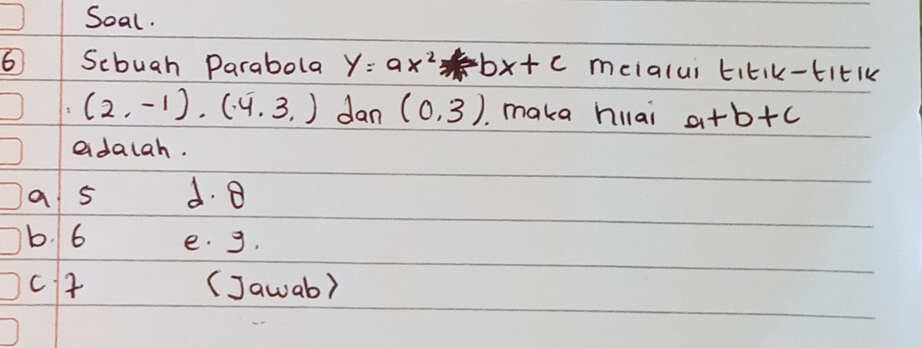 Soal.
6 Sebuah Parabola y = ax² + bx + c melalui titik-titik
(2, -1). (4. 3.) dan (0,3). maka nilai a+b+c
adalah.
a. 5 d. 8
b. 6 e. 9.
c. 7 (Jawab)